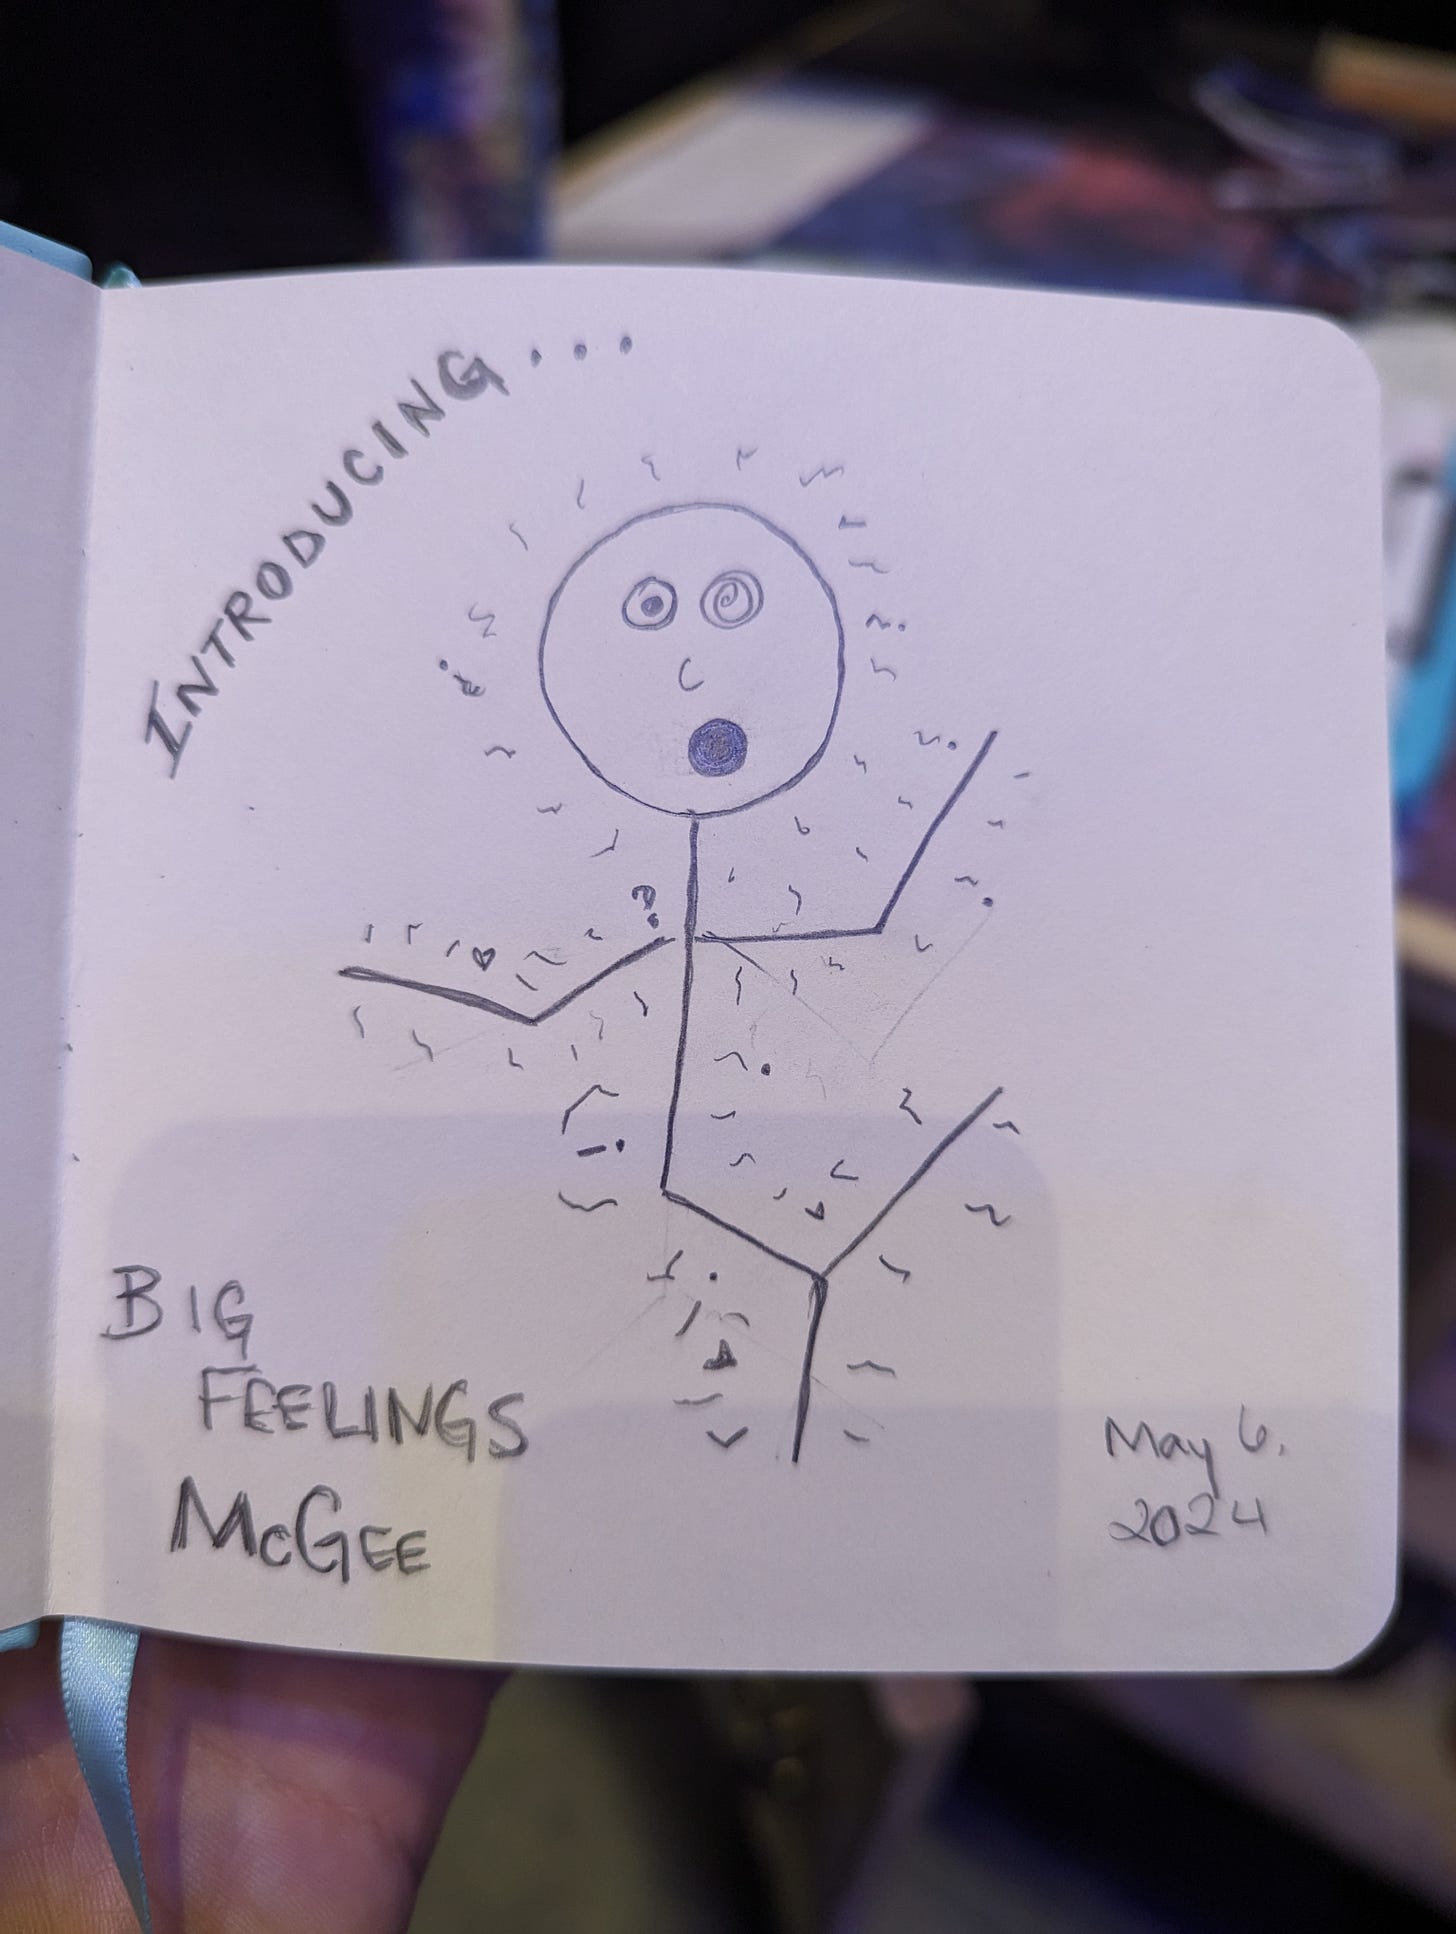 INTRODUCING...
?
BIG
FEELINGS
McGEE
May 6,
2024